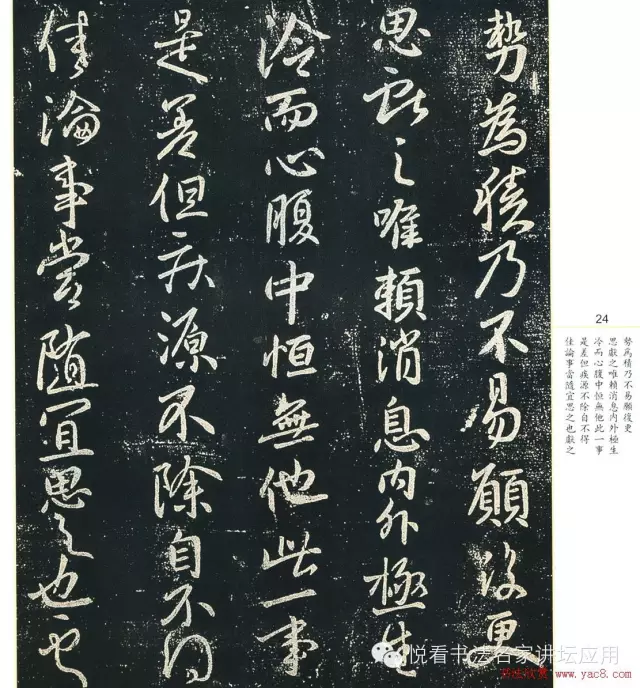 勢為積乃不易願復更
思獻之唯賴消息内外極生
冷而心腹中恒無他此一事
是差但疾源不除自不得
佳論事當隨宜思之也
24
勢為積乃不易願復更
思獻之唯賴消息内外極生
冷而心腹中恒無他此一事
是差但疾源不除自不得
佳論事當隨宜思之也獻之
悦看书法名家讲坛应用
书法欣赏 www.yac8.com